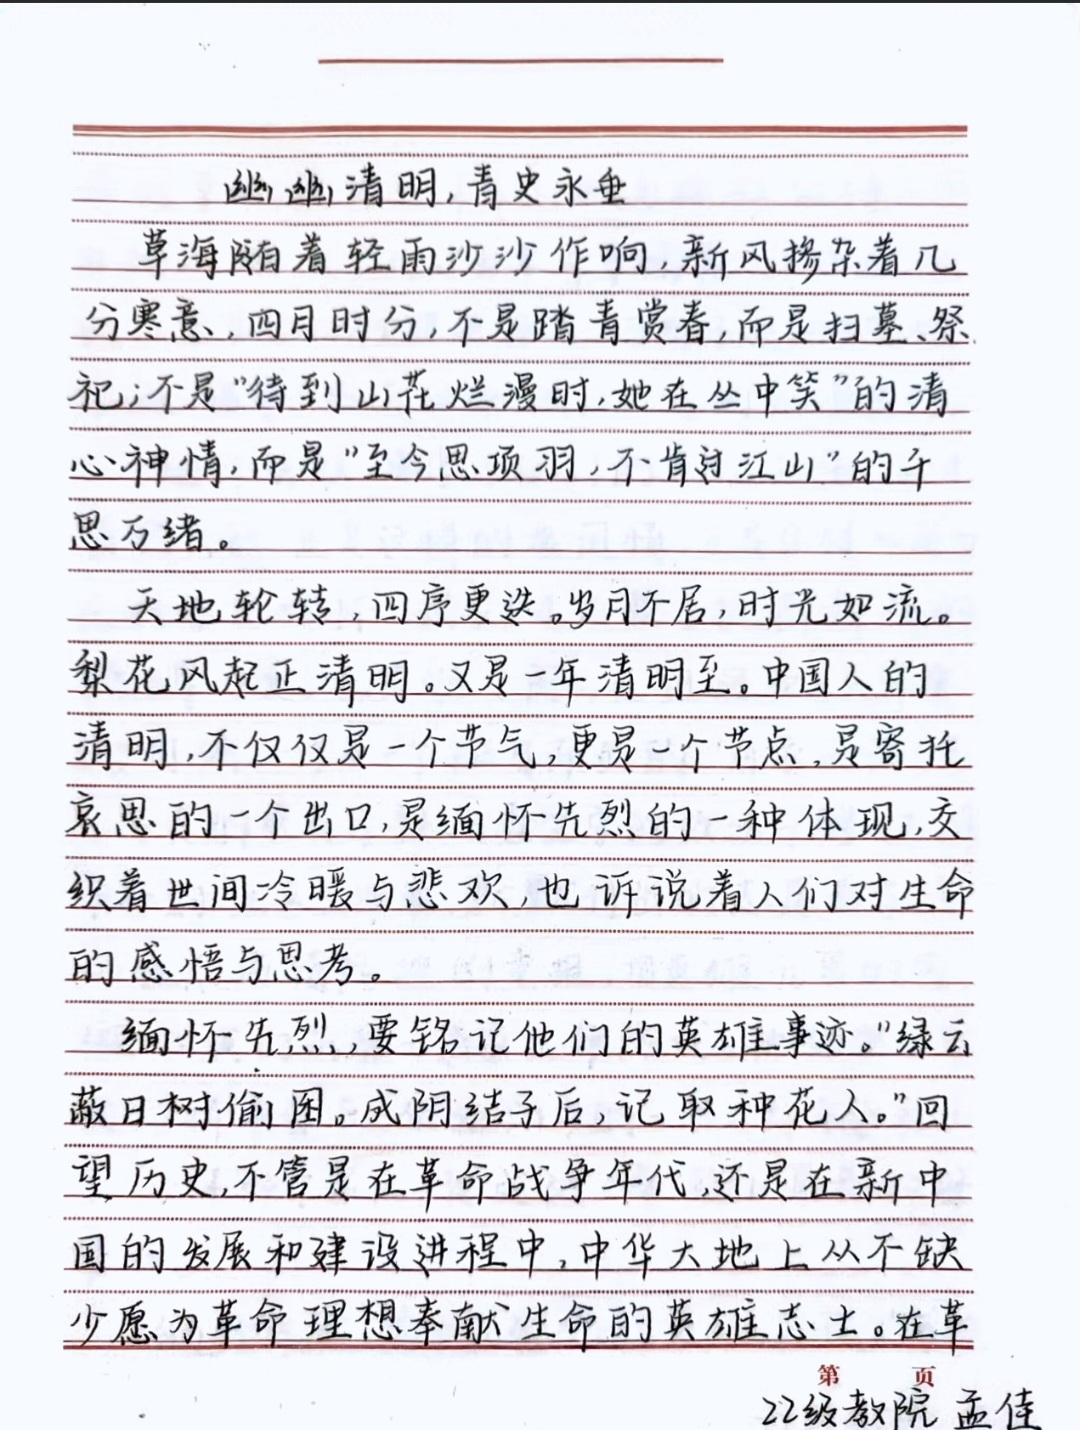 幽幽清明,青史永垂
草海随着轻雨沙沙作响,新风掺杂着几
分寒意,四月时分,不是踏青赏春,而是扫墓、祭
祀;不是"待到山花烂漫时,她在丛中笑"的清
心神情,而是"至今思项羽,不肯过江山"的千
思万绪。
天地轮转,四序更迭。岁月不居,时光如流。
梨花风起正清明。又是一年清明至。中国人的
清明,不仅仅是一个节气,更是一个节点,是寄托
哀思的一个出口,是缅怀先烈的一种体现,交
织着世间冷暖与悲欢,也诉说着人们对生命
的感悟与思考。
缅怀先烈,要铭记他们的英雄事迹。"绿云
蔽日树偷围。成阴结子后,记取种花人。"回
望历史,不管是在革命战争年代,还是在新中
国的发展和建设进程中,中华大地上从不缺
少愿为革命理想奉献生命的英雄志士。在革
第 页
22级教院 孟佳